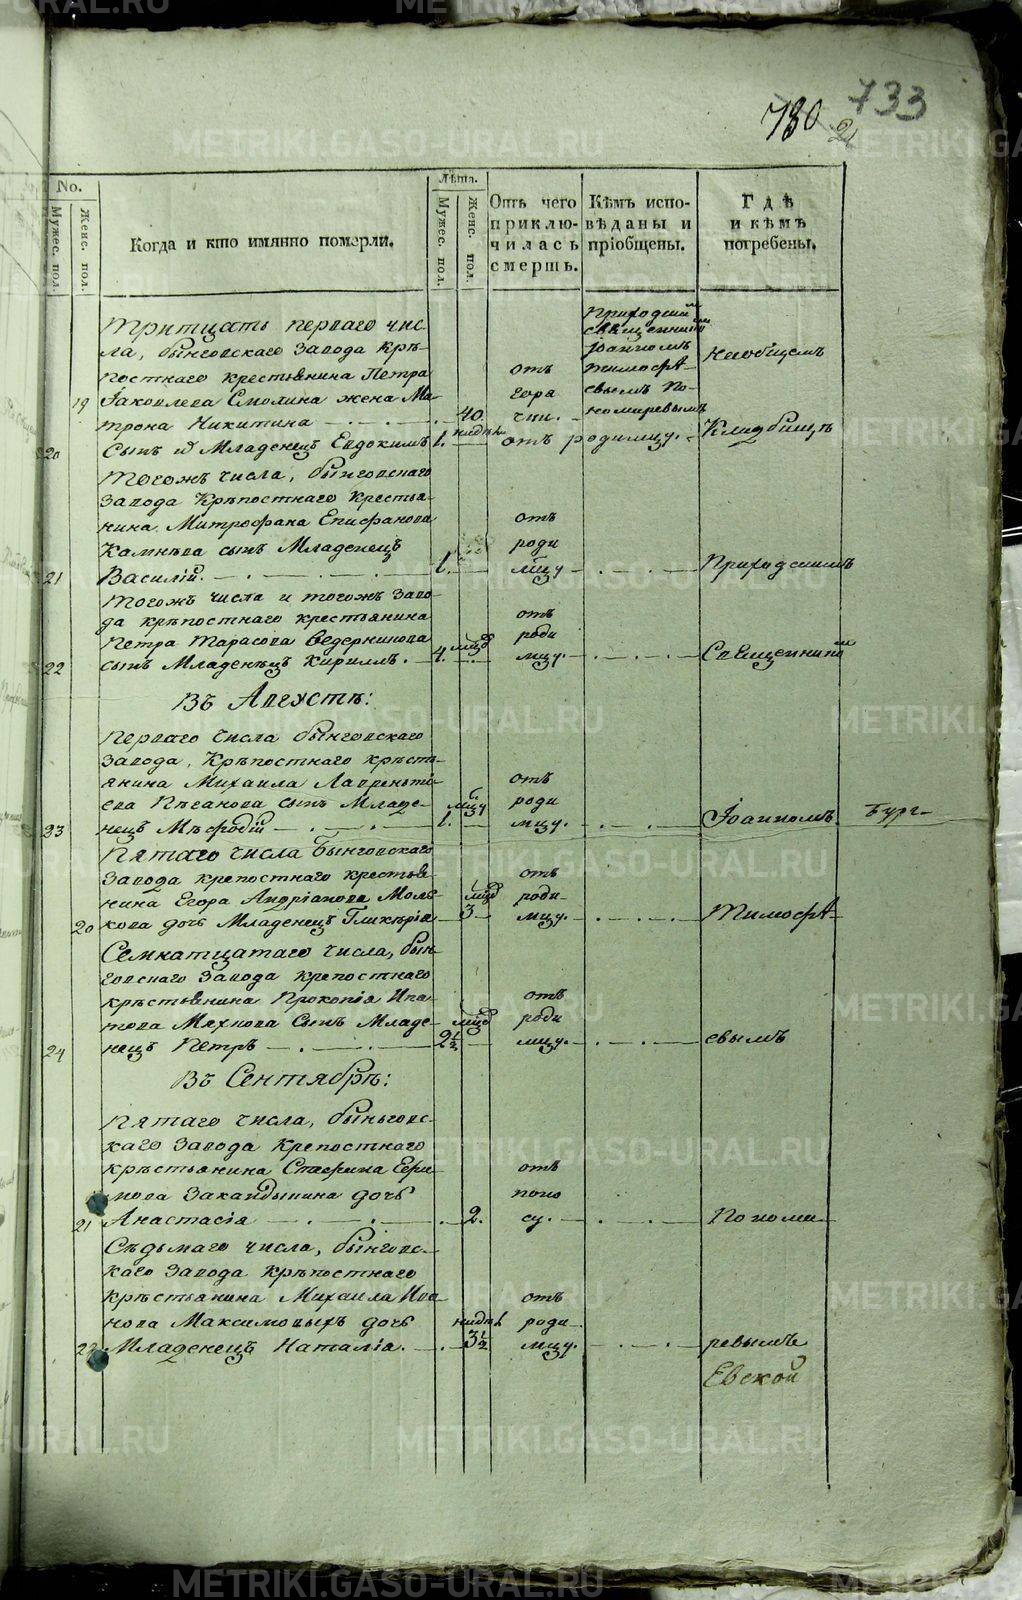 733
780
2
No.
Мужес. пол.
Женс. пол.
Когда и кто имянно померли.
Лѣта.
Мужес. пол.
Женс. пол.
Отъ чего
приклю-
чилась
смерть.
Кѣмъ испо-
вѣданы и
пріобщены.
Гдѣ
и кѣмъ
погребены.
Тритцать перваго чис-
ла, быньговскаго завода крѣ-
постнаго крестьянина Петра
19 Іаковлева Смолина жена Ма-
трона Никитина 40
отъ
гора
чки.
Приходским
священником
Іоанномъ
Тимофѣ-
евымъ По-
номаревымъ
На общемъ
20 Сынъ Младенецъ Евдокимъ 1. нидѣл отъ родимцу.
Кладбищѣ
Тогожъ числа, быньговскаго
завода Крѣпостнаго Крестья-
нина Митрофана Епифанова
Камнѣва сынъ Младенецъ
21 Василій. 1.
отъ
роди
мцу
Приходскимъ
Тогожъ числа и тогожъ заво-
да крѣпостнаго крестьянина
Петра Тарасова Ведерникова
22 сынъ Младенецъ Кириллъ. 4. мцд
отъ
роди
мцу.
Священником
Въ Августѣ:
перваго числа быньговскаго
завода, Крѣпостнаго крѣсть-
янина Михаила Лаврентьи-
ева сынъ Младе-
23 нецъ Меѳодій 1.
отъ
роди
мцу.
Іоанномъ
Бург-
Пятаго числа Быньговскаго
завода крепостнаго крестья-
нина Егора Андріанова
20 кова дочь Младенецъ Гликѣрія 3 мцд
отъ
роди-
мцу.
Тимофѣ-
Семнатцатаго числа, бын-
говскаго завода крепостнаго
крѣстьянина Прокопія Ипа-
това Мяхнова Сынъ Младе-
24 нецъ Петръ 2½ мцд
отъ
роди
мцу.
евымъ
Въ Сентябрѣ:
Пятаго числа, быньговс-
каго завода Крепостнаго
крѣстьянина Стафѣна Ефи-
мова дочь
21 Анастасія 2.
отъ
поно
су.
Понома-
Сѣдьмаго числа, быньговс-
каго завода крѣпостнаго
крѣстьянина Михаила Ива-
нова Максимовыхъ дочь
22 Младенецъ Наталія. 3½ нидѣл
отъ
роди-
мцу.
ревымъ
Евской
METRIKI.GASO-URAL.RU